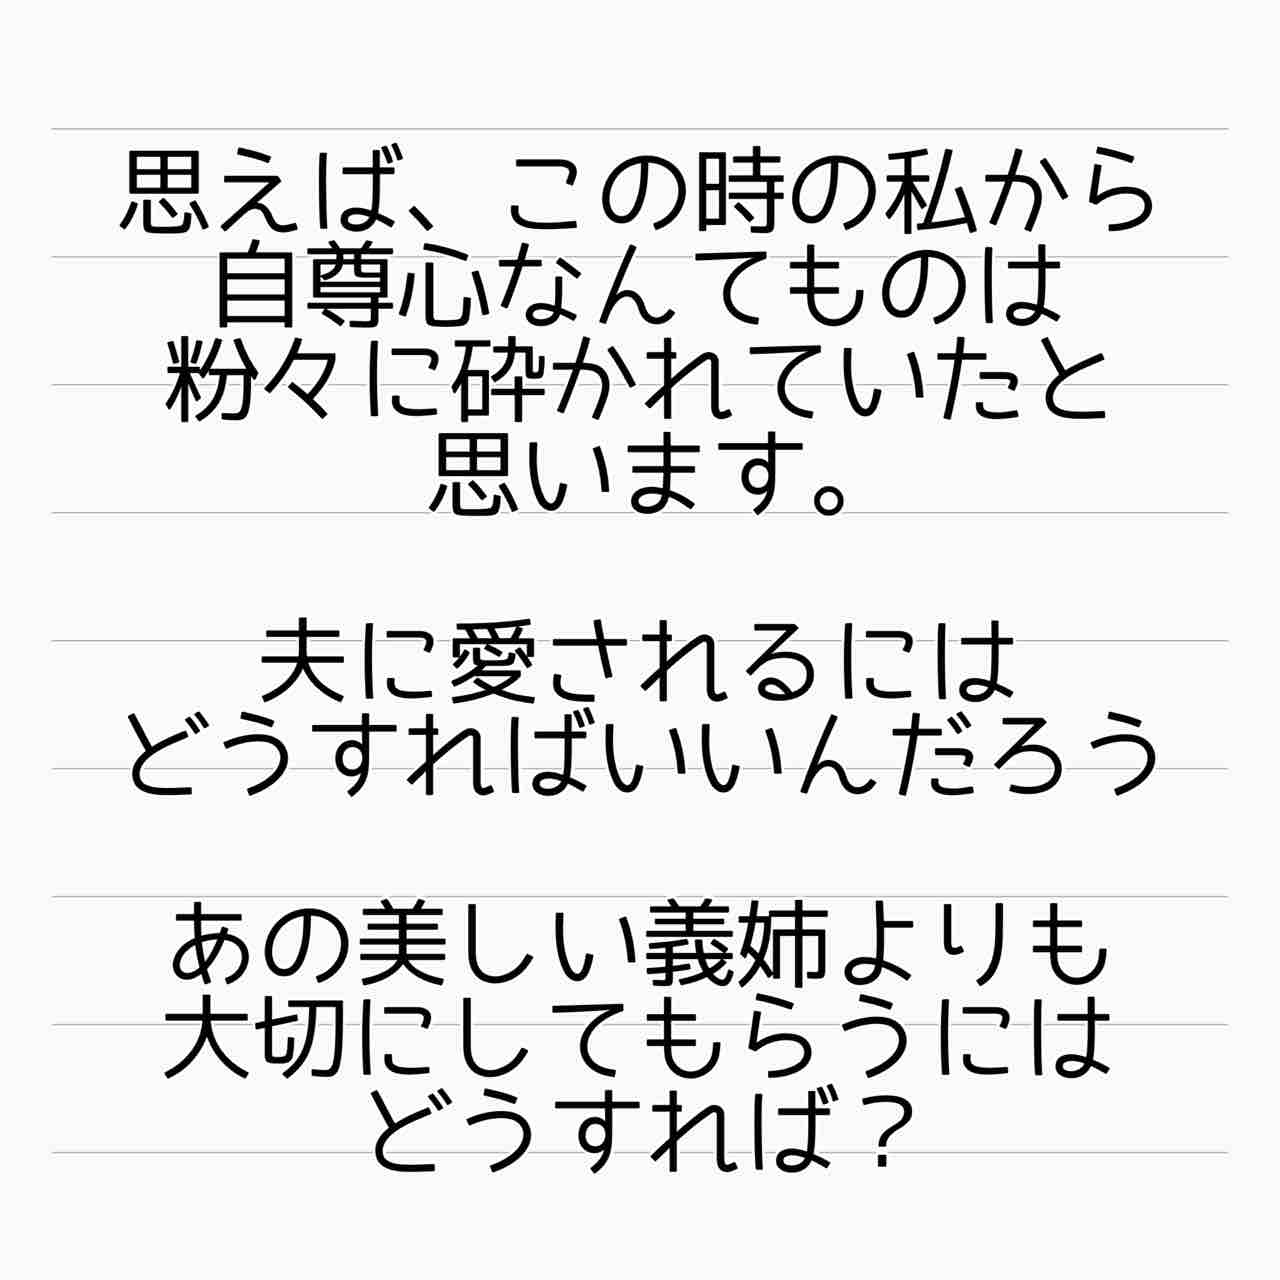 思えば、この時の私から
自尊心なんてものは
粉々に砕かれていたと
思います。
夫に愛されるには
どうすればいいんだろう
あの美しい義姉よりも
大切にしてもらうには
どうすれば？